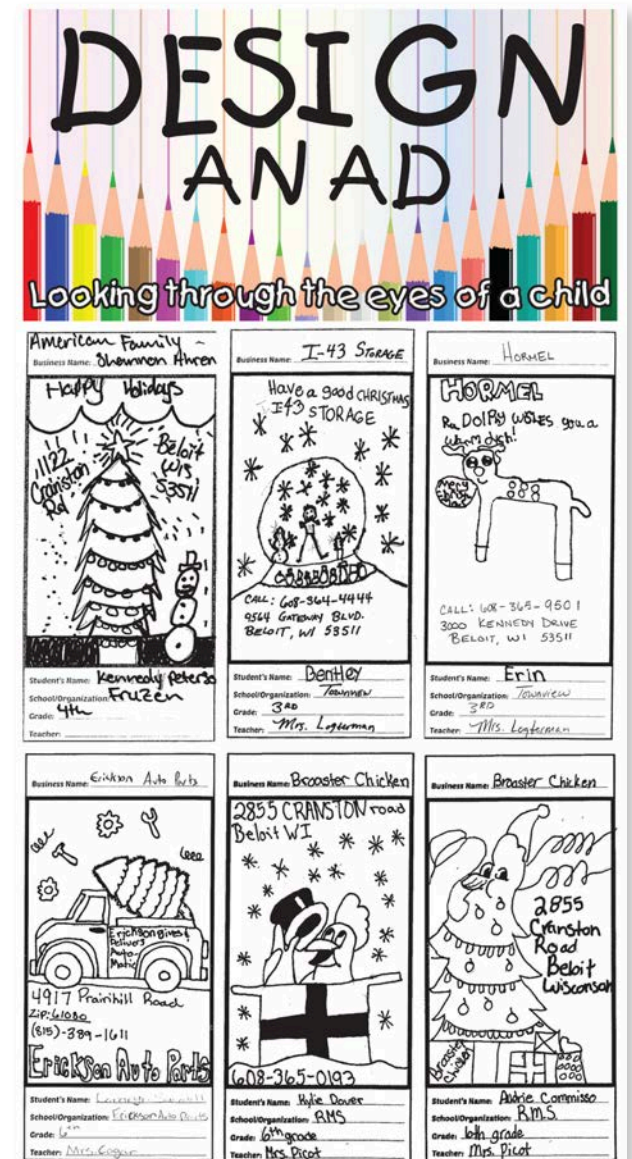 DESIGN
AN AD
Looking through the eyes of a child
Business Name: American Family -
Shannon Ahren
Happy Holidays
1122
Cranston
Rd
Beloit
Wis
53511
Student's Name: Kennedy Peterso
School/Organization: Fruzen
Grade: 4th
Teacher:
Business Name: I-43 STORAGE
Have a good CHRISTMAS
I43 STORAGE
CALL: 608-364-4444
9564 GATEWAY BLVD.
BELOIT, WI 53511
Student's Name: Bentley
School/Organization: Townview
Grade: 3RD
Teacher: Mrs. Logterman
Business Name: HORMEL
HORMEL
RuDolPhy wishes you a
warm dish!
Merry
Christ
mas
CALL: 608-365-9501
3000 KENNEDY DRIVE
BELOIT, WI 53511
Student's Name: Erin
School/Organization: Townview
Grade: 3RD
Teacher: Mrs. Logterman
Business Name: Erickson Auto Parts
Erickson gives &
Delivers
Auto-
Matic
4917 Prairihill Road
Zip: 61080
(815)-389-1611
Erickson Auto Parts
Student's Name:
School/Organization: Erickson Auto Parts
Grade: 6th
Teacher: Mrs. Cogar
Business Name: Broaster Chicken
2855 CRANSTON road
Beloit WI
608-365-0193
Student's Name: Kylie Dover
School/Organization: RMS
Grade: 6th grade
Teacher: Mrs. Picot
Business Name: Broaster Chicken
2855
Cranston
Road
Beloit
Wisconson
Broaster
Chicken
Student's Name: Audrie Commisso
School/Organization: RMS
Grade: 6th grade
Teacher: Mrs. Picot